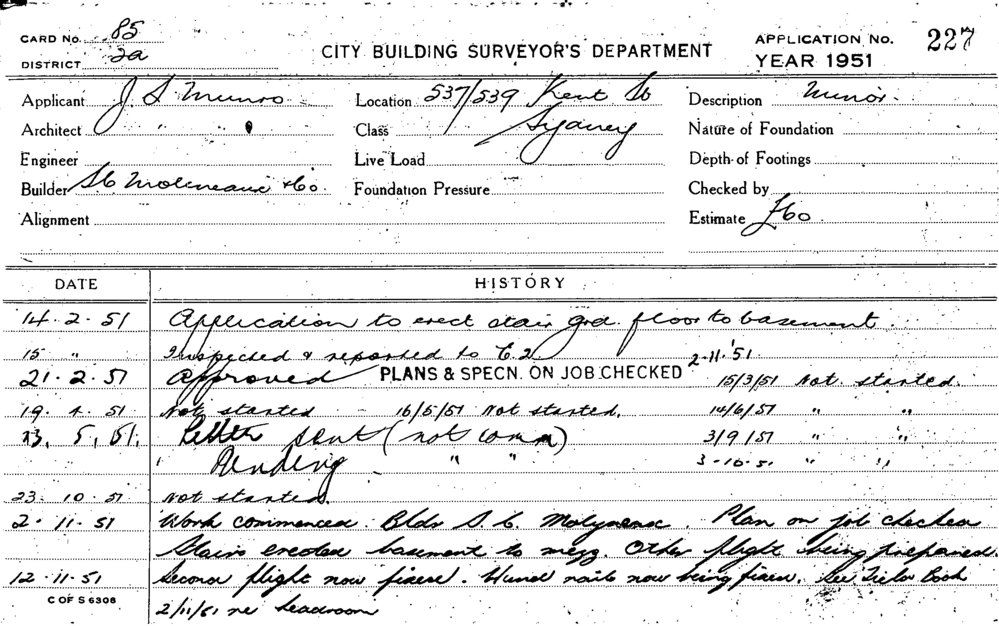 CARD No. 85
DISTRICT 2a
CITY BUILDING SURVEYOR'S DEPARTMENT
APPLICATION No. 227
YEAR 1951
Applicant J. S. Munro
Location 537/539 Kent St
Description Minor.
Architect " "
Class Sydney
Nature of Foundation
Engineer
Live Load
Depth of Footings
Builder Molineaux & Co.
Foundation Pressure
Checked by
Alignment
Estimate £60
DATE HISTORY
14. 2. 51 Application to erect stair grd. floor to basement.
15 " Inspected & reported to 2-11-'51.
21. 2. 51 Approved PLANS & SPECN. ON JOB CHECKED 15/3/51 Not started.
19. 4. 51 Not started 16/5/51 Not started. 14/6/51 " "
23. 5. 51. Letter sent (not comm) 3/9/51 " "
Pending " " 3-10-51 " "
23. 10. 51 Not started
2. 11. 51 Work commenced. Bldr S. C. Molyneux. Plan on job checked
Stairs erected basement to mezz. Other flight being prepared.
12. 11. 51 Second flight now fixed. Hand rails now being fixed. See Field Book
2/11/51 re headroom
C OF S 6308